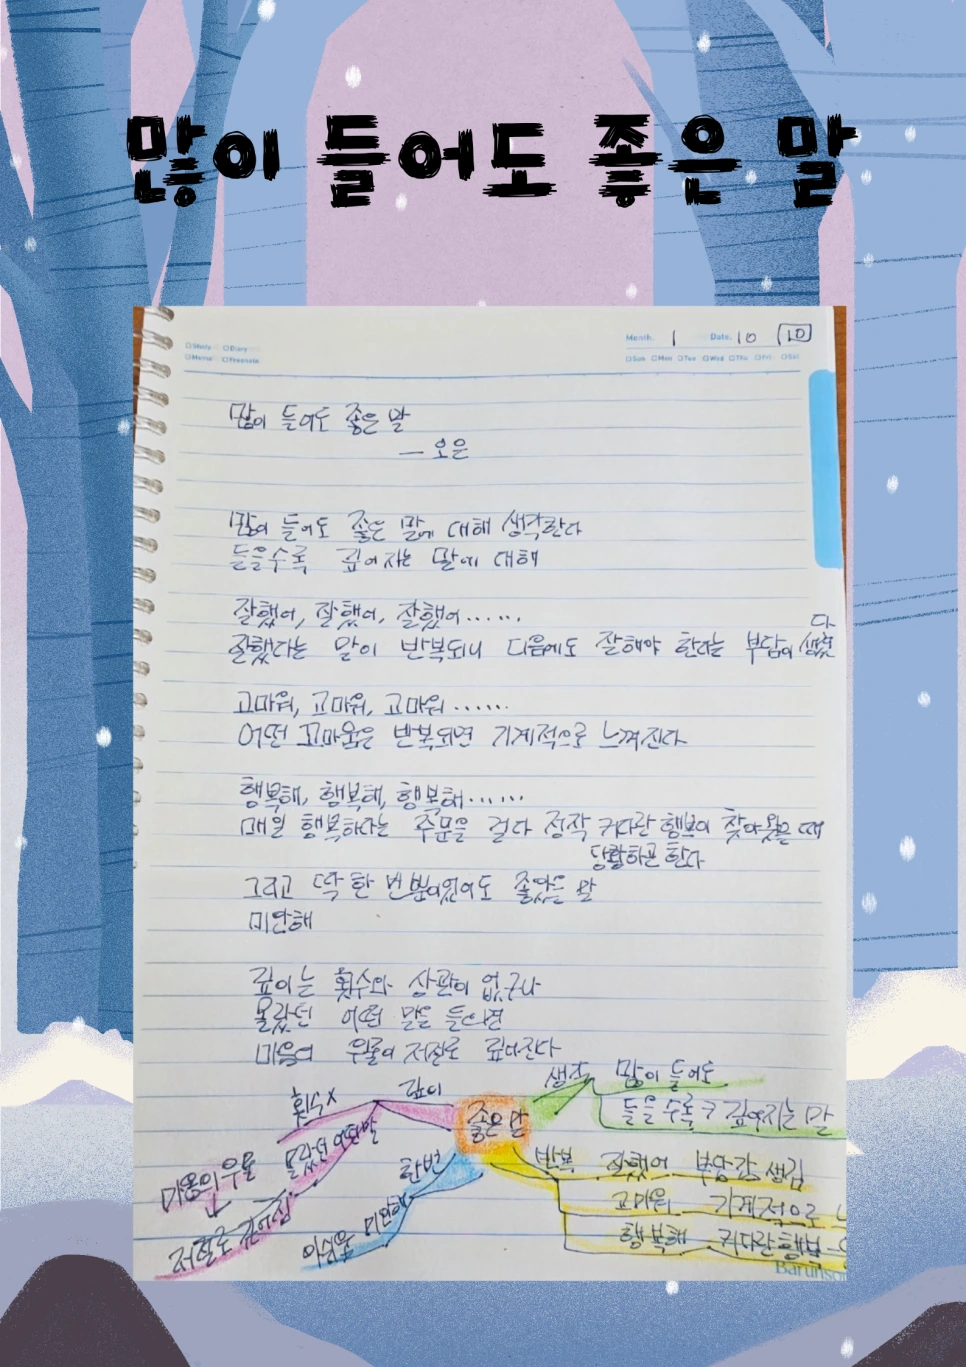 많이 들어도 좋은 말
□Study □Diary
□Memo □Freenote
Month. 1 Date. 10 10
□Sun □Mon □Tue □Wed □Thu □Fri □Sat
많이 들어도 좋은 말
— 오은
많이 들어도 좋은 말에 대해 생각한다
들을수록 깊어지는 말에 대해
잘했어, 잘했어, 잘했어······
잘했다는 말이 반복되니 다음에도 잘해야 한다는 부담이 생겼다
고마워, 고마워, 고마워······
어떤 고마움은 반복되면 기계적으로 느껴진다
행복해, 행복해, 행복해······
매일 행복하다는 주문을 걸다 정작 커다란 행복이 찾아왔을 때
당황하곤 한다
그리고 딱 한 번뿐이었어도 좋았을 말
미안해
깊이는 횟수와 상관이 없구나
몰랐던 어떤 말을 들으면
마음의 우물이 저절로 깊어진다
좋은 말
생각
많이 들어도
들을수록 깊어지는 말
반복
잘했어 부담감 생김
고마워 기계적으로
행복해 커다란 행복
깊이
횟수 x
몰랐던 어떤 말
마음의 우물
저절로 깊어짐
한번
미안해
아쉬움